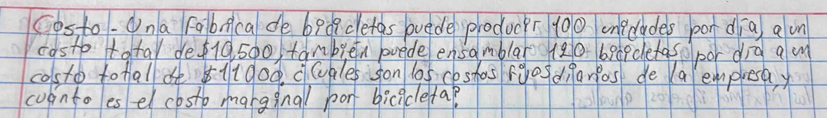 Costo - Una fabrica de bicicletas puede producir 100 unidades por día, a un
costo total de $10,500, también puede ensamblar 120 bicicletas por día a un
costo total de $11000. ¿Cuales son los costos fijos diarios de la empresa, y
cuánto es el costo marginal por bicicleta?